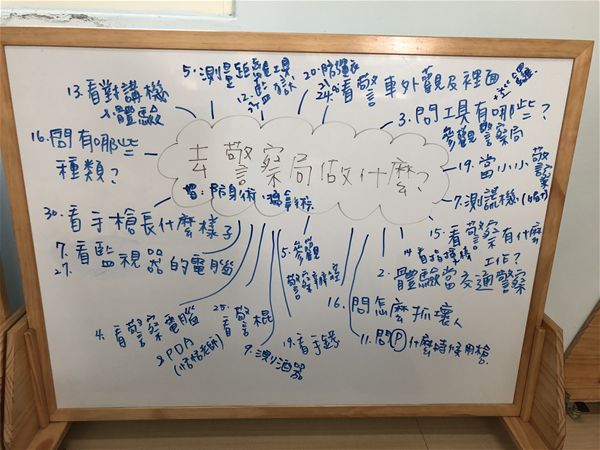 5.測量距離工具
12.
20.防彈衣
24.看警車外觀及裡面
13.看對講機
&體驗
3.問工具有哪些?
參觀警察局
16.問有哪些
種類?
去警察局做什麼?
19.當小小警察
7.測謊機
30.看手槍長什麼樣子
15.看警察有什麼
工作?
7.
27.看監視器的電腦
5.參觀
警察
2.體驗當交通警察
16.問怎麼抓壞人
4.看警察電腦
&PDA
25.看警棍
19.看手銬
9.測酒器
11.問P什麼時候用槍